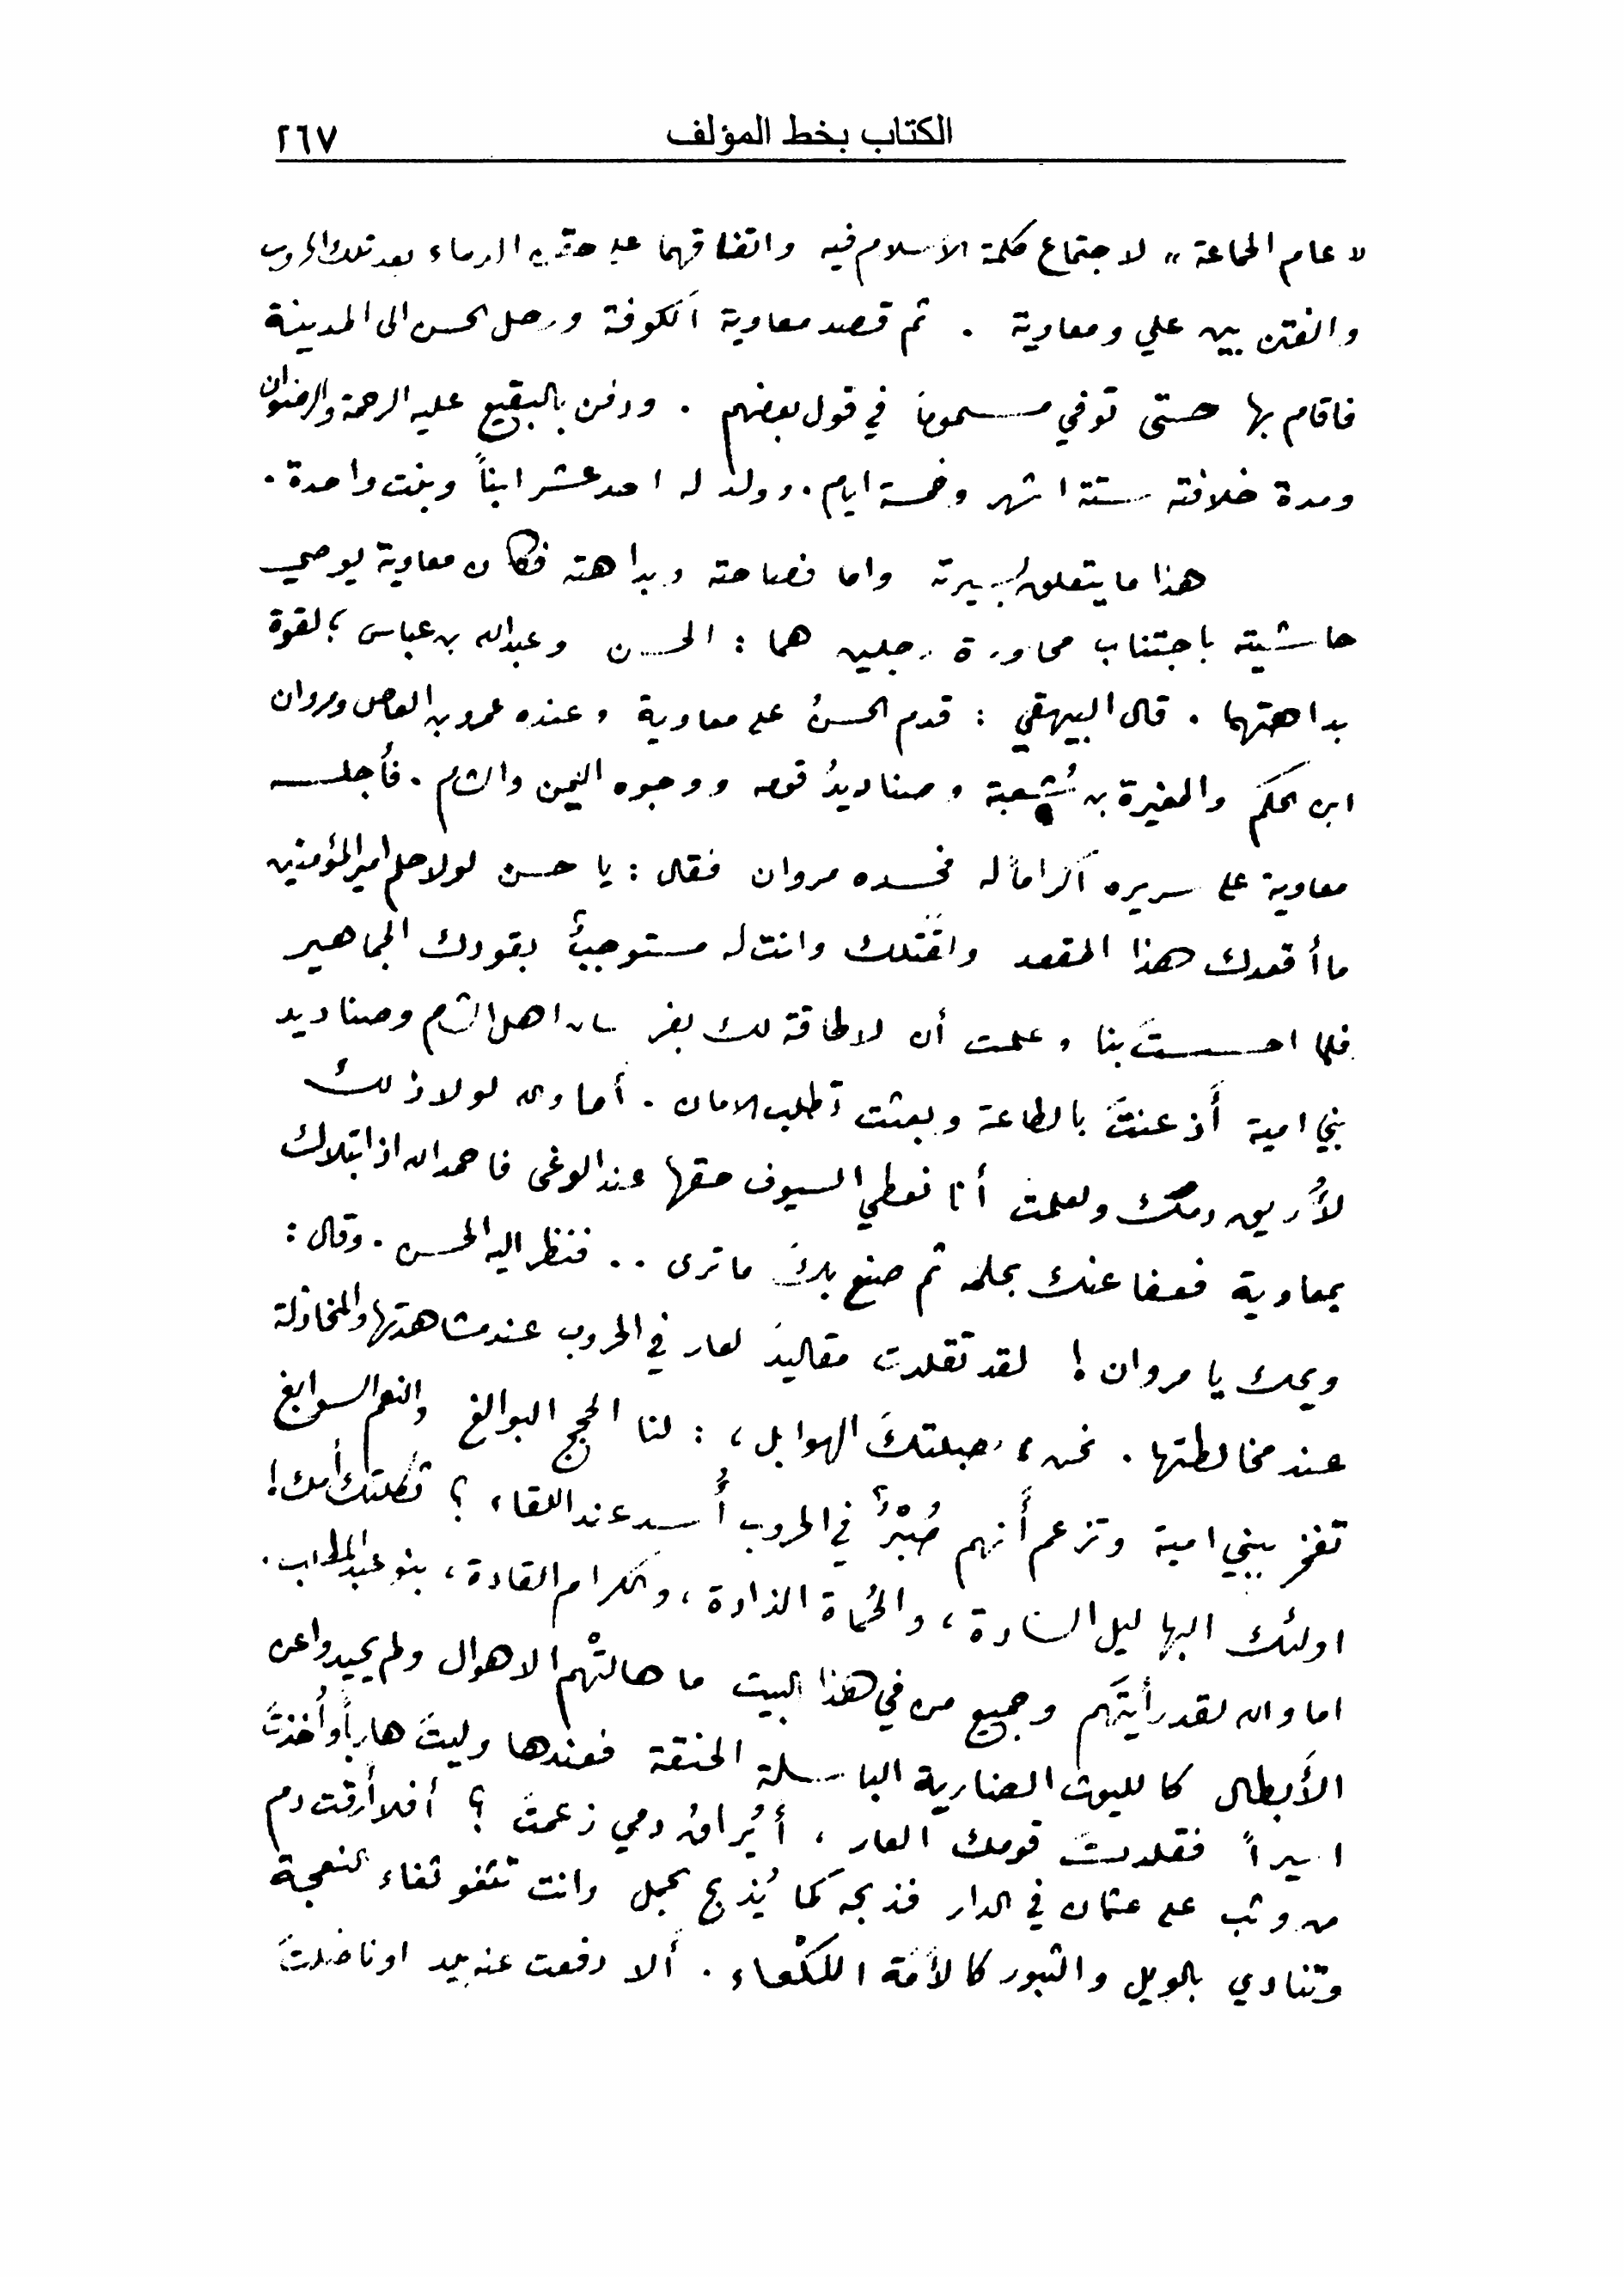 الكتاب بخط المؤلف ٢٦٧
« عام الجماعة » لاجتماع كلمة الاسلام فيه واتفاقهما على حقن الدماء بعد تلك الحروب
والفتن بين علي ومعاوية . ثم قصد معاوية الكوفة ورحل الحسن الى المدينة
فاقام بها حتى توفي مسموماً في قول بعضهم . ودفن بالبقيع عليه الرحمة والرضوان
ومدة خلافته ستة اشهر وخمسة ايام . وولد له احد عشر ابناً وبنت واحدة .
هذا ما يتعلق بسيرته واما فصاحته وبداهته فكان معاوية يوصي
حاشيته باجتناب محاورة رجلين هما : الحسن وعبدالله بن عباس ؛ لقوة
بداهتهما . قال البيهقي : قدم الحسنُ على معاوية وعنده عمرو بن العاص ومروان
ابن الحكم والمغيرة بن شُعبة وصناديدُ قومه ووجوه اليمن والشام . فأجلسه
معاوية على سريره اكراماً له فحسده مروان فقال : يا حسن لولا حلم امير المؤمنين
ما أقعدك هذا المقعد ولقتلك وانت له مستوجبٌ بقودك الجماهير
فلما احسستَ بنا وعلمت أن لا طاقة لك بفرسان اهل الشام وصناديد
بني امية أذعنتَ بالطاعة وبعثت تطلب الامان . أما والله لولا ذلك
لأُريق دمك ولعلمت أنا نعطي السيوف حقها عند الوغى فاحمد الله اذ ابتلاك
بمعاوية فعفا عنك بحلمه ثم صنع بك ما ترى .. فنظر اليه الحسن . وقال :
ويحك يا مروان ! لقد تقلدت مقاليدَ العار في الحروب عند مشاهدتها والمخاذلة
عند مخالطتها . نحن ، هبلتكَ الهوابل ، : لنا الحجج البوالغ والنعم السوابغ
تفخر ببني امية وتزعم أنهم صُبْرٌ في الحروب أُسد عند اللقاء ؟ ثكلتك أمك !
اولئك البهاليل السادة ، والحُماة الذادة ، والكرام القادة ، بنو عبد المطلب .
اما والله لقد رأيتَهم وجميع من في هذا البيت ما هالتْهم الاهوال ولم يحيدوا عن
الأبطال كالليوث الضارية الباسلة الحنقة فعندها وليتَ هارباً وأُخذتَ
اسيراً فقلدت قومك العار ، أيُراق دمي زعمتَ ؟ أفلا أرقت دم
من وثب على عثمان في الدار فذبحه كما يُذبح الجمل وانت تثغو ثغاء النعجة
وتنادي بالويل والثبور كالأمَة اللكْعاء . ألا دفعت عنه بيد او ناضلتَ